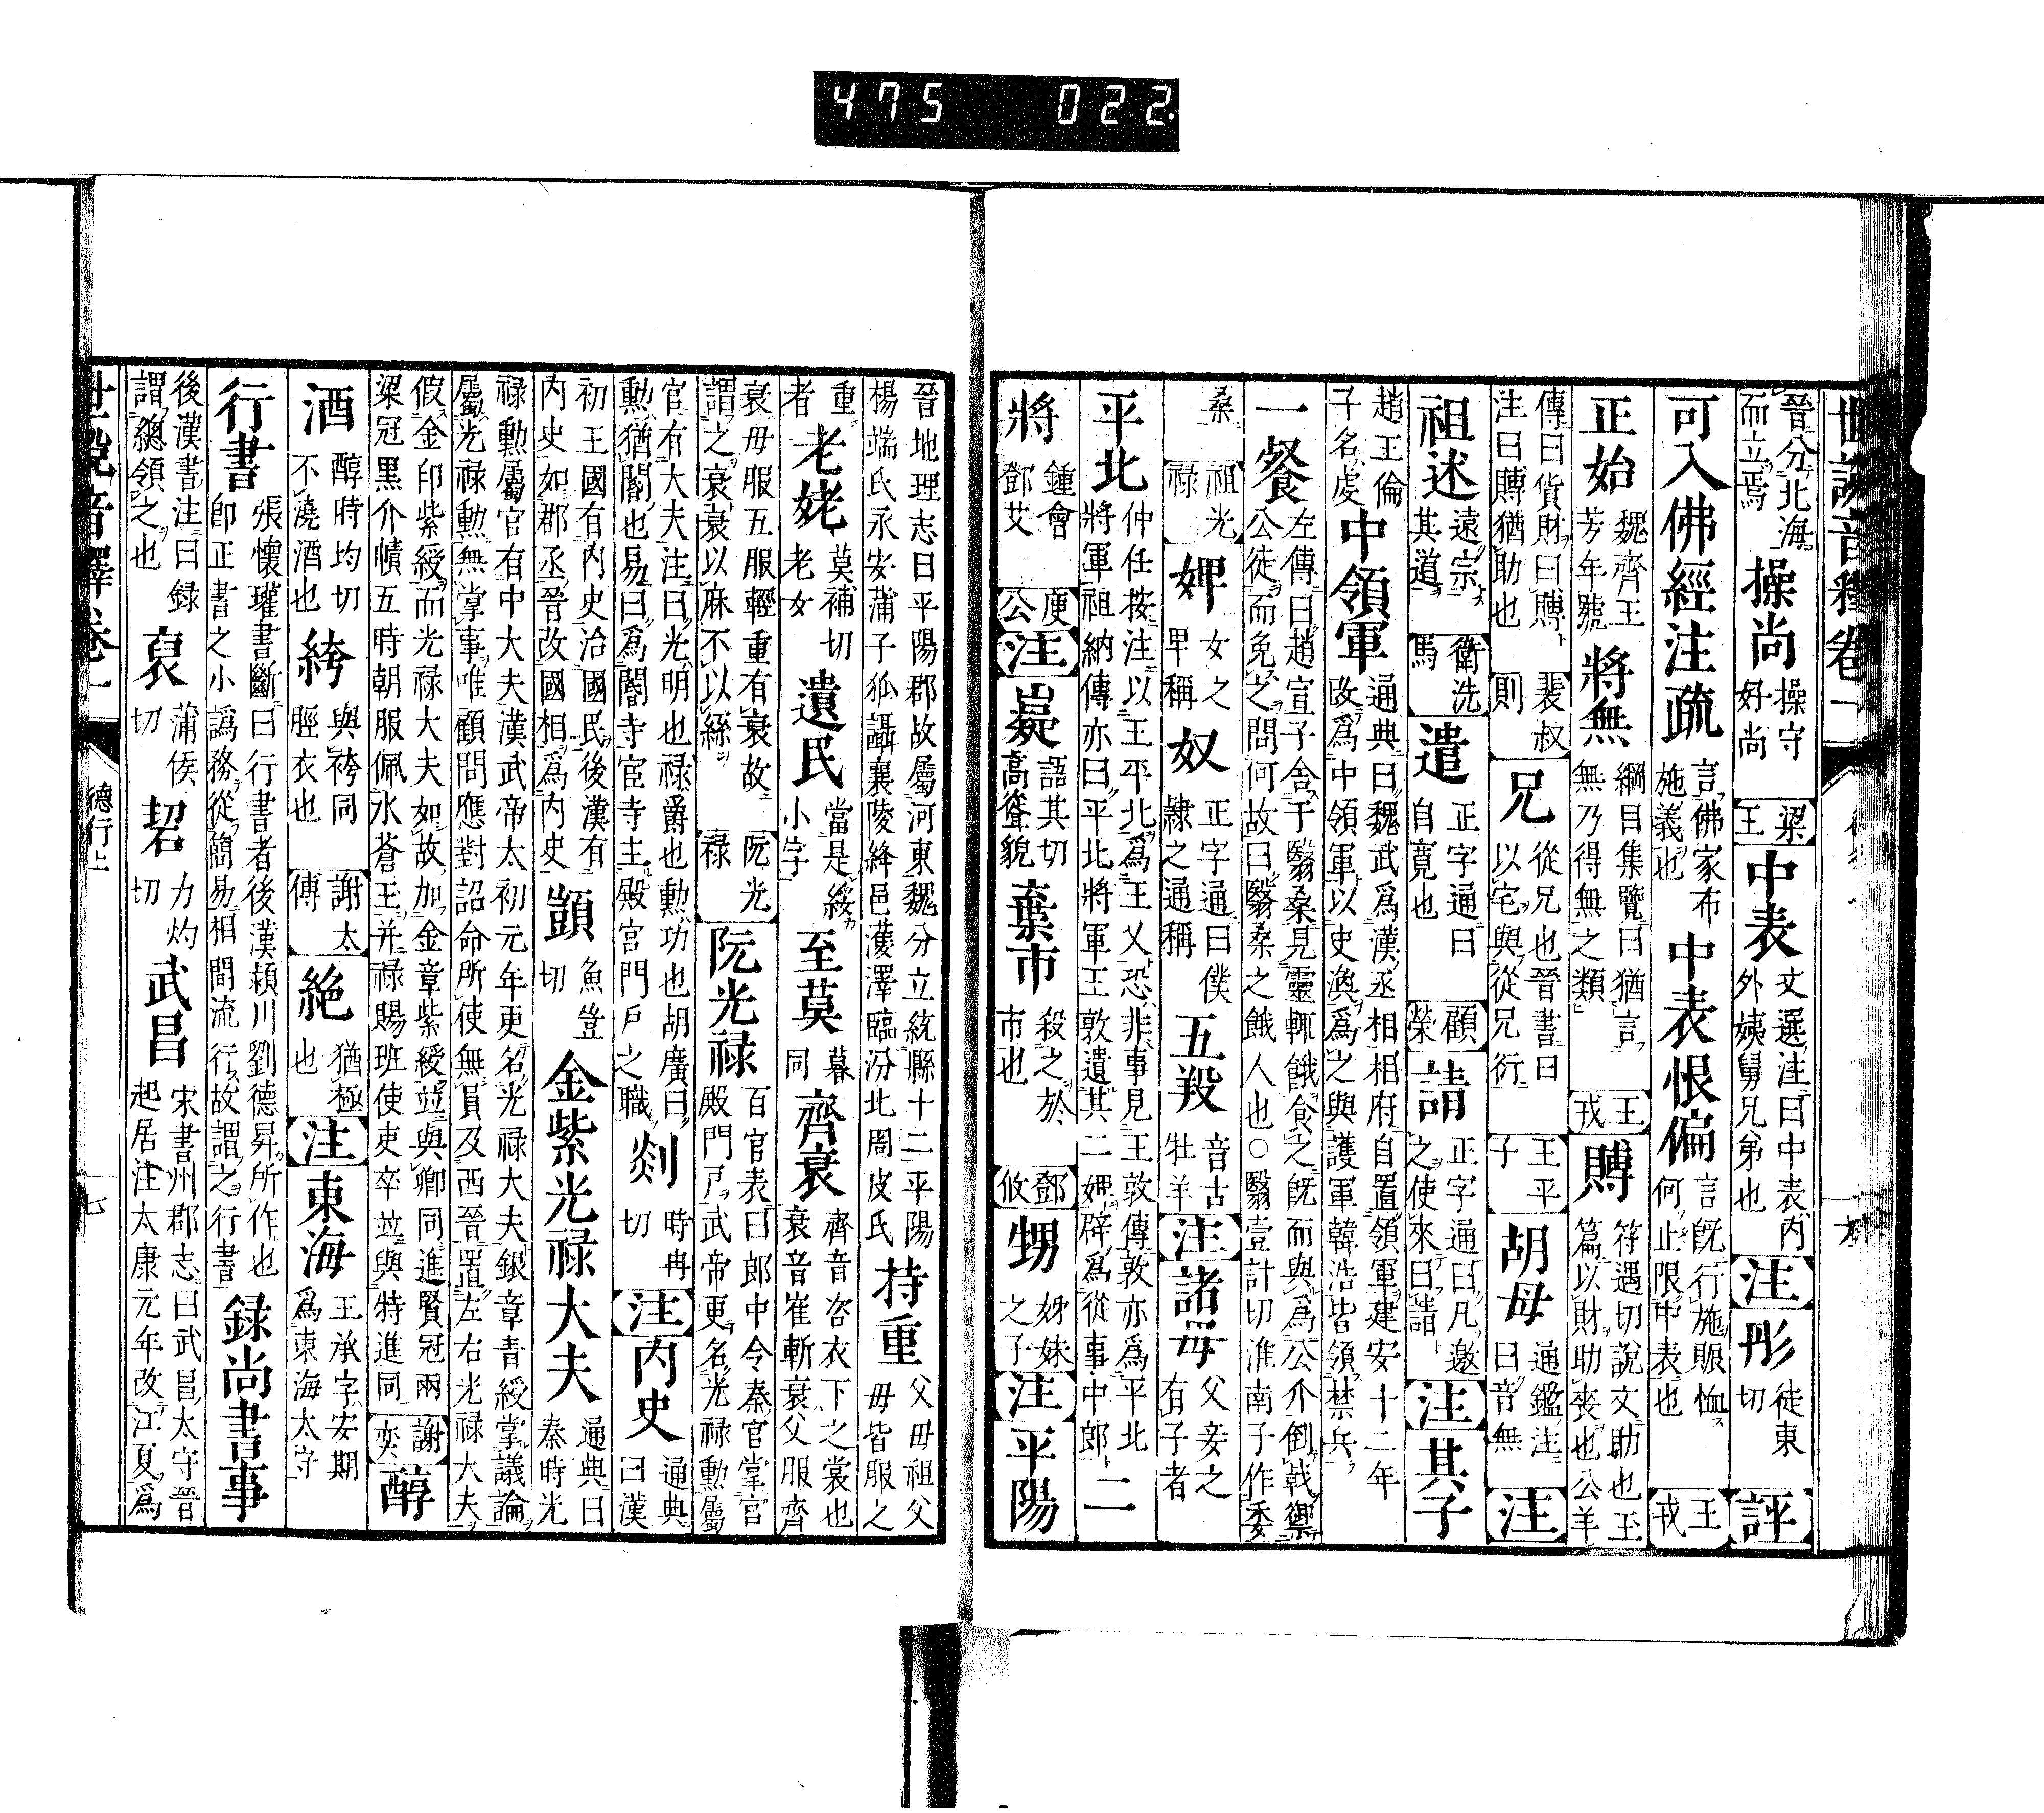 475 022
世說音釋卷一
晉分北海
而立焉
操尚
操守
好尚
梁
王
中表
文選注曰中表內
外姨舅兄弟也
注
彤
徒東
切
評
可入佛經注疏
言佛家布
施義也
中表恨偏
言既行施賑恤
何止限中表也
王
戎
正始
魏齊王
芳年號
將無
綱目集覽曰猶言
無乃得無之類
王
戎
賻
符遇切說文助也玉
篇以財助喪也公羊
傳曰貨財曰賻
注曰賻猶助也
裴叔
則
兄
從兄也晉書曰
以宅與從兄衍
王平
子
胡母
通鑑注
曰音無
注
祖述
遠宗
其道
衛洗
馬
遣
正字通曰
自寬也
顧
榮
請
正字通曰凡邀
之使來曰請
注
其子
趙王倫
子名虔
中領軍
通典曰魏武為漢丞相相府自置領軍建安十二年
改為中領軍以史渙為之與護軍韓浩皆領禁兵
一餐
左傳曰趙宣子舍于翳桑見靈輒餓食之既而與為公介倒戟禦
公徒而免之問何故曰翳桑之餓人也○翳壹計切淮南子作委
桑
祖光
祿
婢
女之
卑稱
奴
正字通曰僕
隸之通稱
五羖
音古
牡羊
注
諸母
父妾之
有子者
平北
仲任按注以王平北為王乂恐非事見王敦傳敦亦為平北
將軍祖納傳亦曰平北將軍王敦遺其二婢辟為從事中郎
二
將
鍾會
鄧艾
庾
公
注
嶷
語其切
高聳貌
棄市
殺之於
市也
鄧
攸
甥
姊妹
之子
注
平陽
晉地理志曰平陽郡故屬河東魏分立統縣十二平陽
楊端氏永安蒲子狐讘襄陵絳邑濩澤臨汾北屈皮氏
持重
父母祖父
母皆服之
重
者
老姥
莫補切
老女
遺民
當是綏
小字
至莫
暮
同
齊衰
齊音咨衣下之裳也
衰音崔斬衰父服齊
衰母服五服輕重有衰故
謂之衰衰以麻不以絲
阮光
祿
阮光祿
百官表曰郎中令秦官掌宮
殿門戶武帝更名光祿勳屬
官有大夫注曰光明也祿爵也勳功也胡廣曰
勳猶閽也易曰為閽寺宦寺主殿宮門戶之職
剡
時冉
切
注
內史
通典
曰漢
初王國有內史治國民後漢有
內史如郡丞晉改國相為內史
顗
魚豈
切
金紫光祿大夫
通典曰
秦時光
祿勳屬官有中大夫漢武帝太初元年更名光祿大夫銀章青綬掌議論
屬光祿勳無掌事唯顧問應對詔命所使無員及西晉置左右光祿大夫
假金印紫綬而光祿大夫如故加金章紫綬並與卿同進賢冠兩
梁冠黑介幘五時朝服佩水蒼玉并祿賜班使吏卒並與特進同
謝
奕
醇
酒
醇時均切
不澆酒也
絝
與袴同
脛衣也
謝太
傅
絶
猶極
也
注
東海
王承字安期
為東海太守
行書
張懷瓘書斷曰行書者後漢潁川劉德昇所作也
即正書之小譌務從簡易相間流行故謂之行書
録尚書事
後漢書注曰録
謂總領之也
裒
蒲侯
切
䂮
力灼
切
武昌
宋書州郡志曰武昌太守晉
起居注太康元年改江夏為
世說音釋卷一
德行上
七